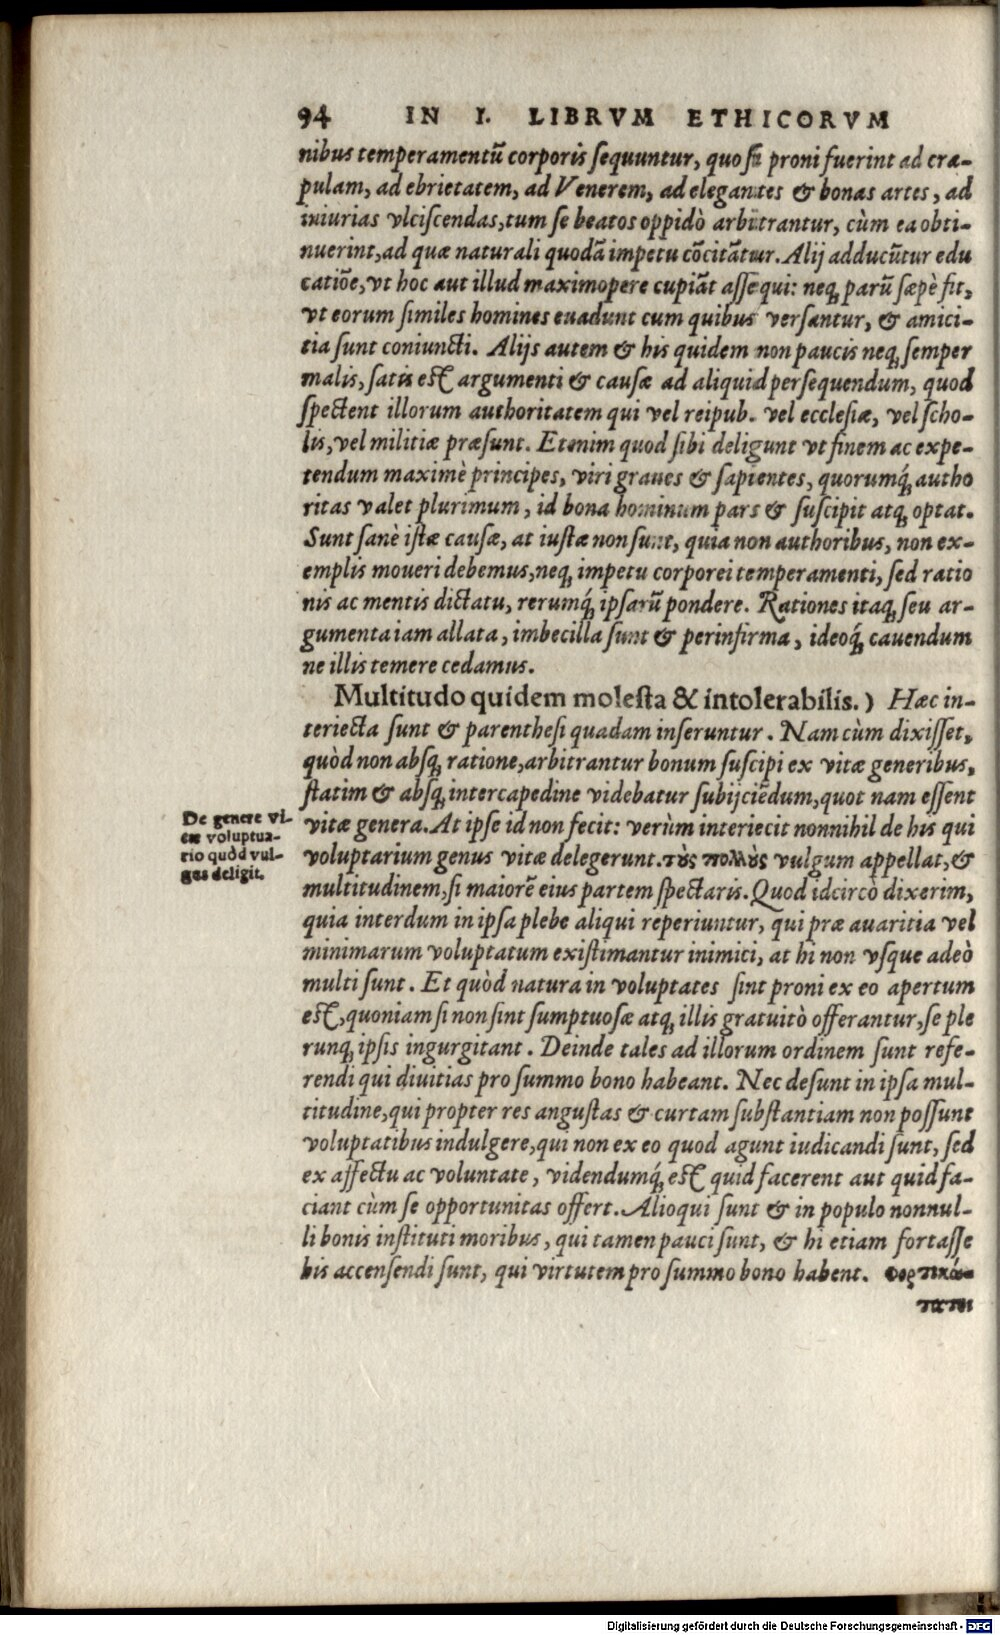 94 IN I. LIBRVM ETHICORVM
nibus temperamentū corporis ſequuntur, quo fit proni fuerint ad cra-
pulam, ad ebrietatem, ad Venerem, ad elegantes & bonas artes, ad
iniurias vlciſcendas, tum ſe beatos oppidò arbitrantur, cùm ea obti-
nuerint, ad quæ naturali quodā impetu cōcitātur. Alij adducūtur edu
catiōe, vt hoc aut illud maximopere cupiāt aſſequi: neq; parū ſæpè fit,
vt eorum ſimiles homines euadunt cum quibus verſantur, & amici-
tia ſunt coniuncti. Alijs autem & his quidem non paucis neq; ſemper
malis, ſatis eſt argumenti & cauſæ ad aliquid perſequendum, quod
ſpectent illorum authoritatem qui vel reipub. vel eccleſiæ, vel ſcho-
lis, vel militiæ præſunt. Etenim quod ſibi deligunt vt finem ac expe-
tendum maximè principes, viri graues & ſapientes, quorumq́; autho
ritas valet plurimum, id bona hominum pars & ſuſcipit atq; optat.
Sunt ſanè iſtæ cauſæ, at iuſtæ non ſunt, quia non authoribus, non ex-
emplis moueri debemus, neq; impetu corporei temperamenti, ſed ratio
nis ac mentis dictatu, rerumq́; ipſarū pondere. Rationes itaq; ſeu ar-
gumenta iam allata, imbecilla ſunt & perinfirma, ideoq́; cauendum
ne illis temere cedamus.
Multitudo quidem moleſta & intolerabilis.) Hæc in-
teriecta ſunt & parentheſi quadam inſeruntur. Nam cùm dixiſſet,
quòd non abſq; ratione, arbitrantur bonum ſuſcipi ex vitæ generibus,
ſtatim & abſq; intercapedine videbatur ſubijciēdum, quot nam eſſent
vitæ genera. At ipſe id non fecit: verùm interiecit nonnihil de his qui
voluptarium genus vitæ delegerunt. τὺς πολλὺς vulgum appellat, &
multitudinem, ſi maiorē eius partem ſpectaris. Quod idcircò dixerim,
quia interdum in ipſa plebe aliqui reperiuntur, qui præ auaritia vel
minimarum voluptatum exiſtimantur inimici, at hi non vſque adeò
multi ſunt. Et quòd natura in voluptates ſint proni ex eo apertum
eſt, quoniam ſi non ſint ſumptuoſæ atq; illis gratuitò offerantur, ſe ple
runq; ipſis ingurgitant. Deinde tales ad illorum ordinem ſunt refe-
rendi qui diuitias pro ſummo bono habeant. Nec deſunt in ipſa mul-
titudine, qui propter res anguſtas & curtam ſubſtantiam non poſſunt
voluptatibus indulgere, qui non ex eo quod agunt iudicandi ſunt, ſed
ex affectu ac voluntate, videndumq́; eſt quid facerent aut quid fa-
ciant cùm ſe opportunitas offert. Alioqui ſunt & in populo nonnul-
li bonis inſtituti moribus, qui tamen pauci ſunt, & hi etiam fortaſſe
his accenſendi ſunt, qui virtutem pro ſummo bono habent. Φορτικώ-
τατοι
De genere vi-
tæ voluptua-
rio quòd vul-
gus deligit.
Digitalisierung gefördert durch die Deutsche Forschungsgemeinschaft - DFG